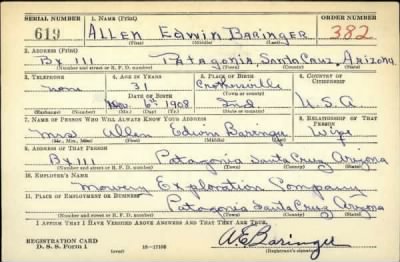 SERIAL NUMBER 1. NAME (Print) ORDER NUMBER
619 ALLEN EDWIN BARINGER 382
(First) (Middle) (Last)
2. ADDRESS (Print)
Bx 111 Patagonia, Santa Cruz, Arizona
(Number and street or R. F. D. number) (Town) (County) (State)
3. TELEPHONE 4. AGE IN YEARS 5. PLACE OF BIRTH 6. COUNTRY OF CITIZENSHIP
none 31 Crothersville
DATE OF BIRTH (Town or county)
Nov. 6th 1908 Ind U.S.A
(Mo.) (Day) (Yr.) (State or country)
7. NAME OF PERSON WHO WILL ALWAYS KNOW YOUR ADDRESS 8. RELATIONSHIP OF THAT PERSON
Mrs Allen Edwin Baringer Wife
(Mr., Mrs., Miss) (First) (Middle) (Last)
9. ADDRESS OF THAT PERSON
Bx 111 Patagonia Santa Cruz Arizona
(Number and street or R. F. D. number) (Town) (County) (State)
10. EMPLOYER'S NAME
Mowery Exploration Company
11. PLACE OF EMPLOYMENT OR BUSINESS
Patagonia Santa Cruz, Arizona
(Number and street or R. F. D. number) (Town) (County) (State)
I AFFIRM THAT I HAVE VERIFIED ABOVE ANSWERS AND THAT THEY ARE TRUE.
REGISTRATION CARD
D. S. S. Form 1 (over) 16-17105 A.E. Baringer